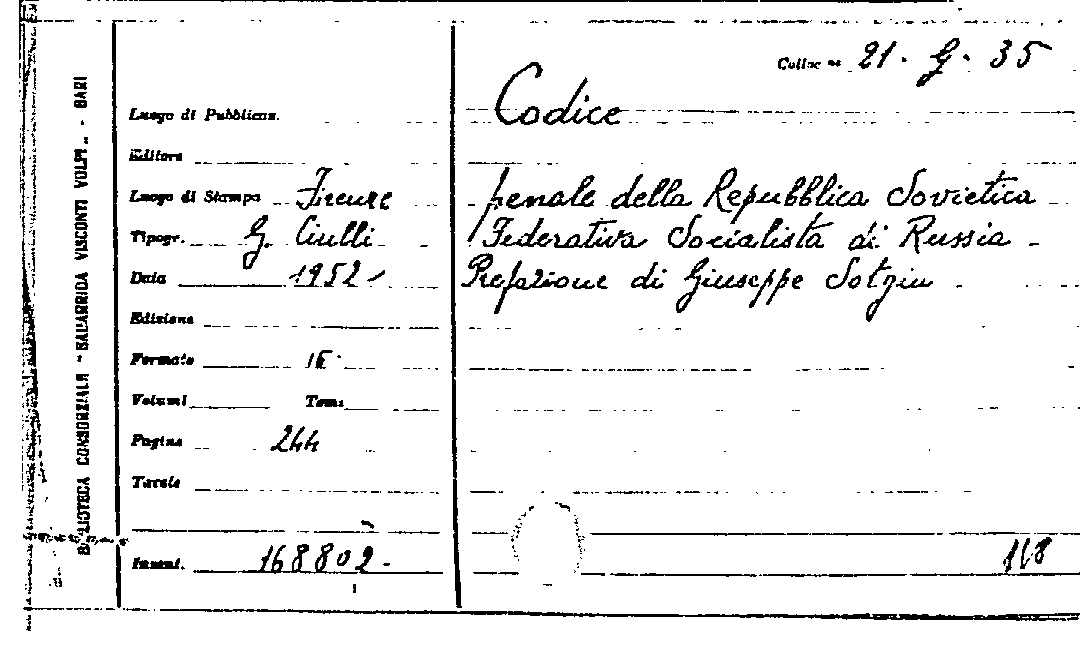 BIBLIOTECA CONSORZIALE "SAGARRIGA VISCONTI VOLPI" - BARI
Colloc.ne 21. G. 35
Codice
penale della Repubblica Sovietica
Federativa Socialista di Russia -
Prefazione di Giuseppe Sotgiu .
Luogo di Pubblicaz.
Editore
Luogo di Stampa Firenze
Tipogr. G. Ciulli
Data 1952
Edizione
Formato 16°
Volumi Tomi
Pagine 244
Tavole
Invent. 168802.
118